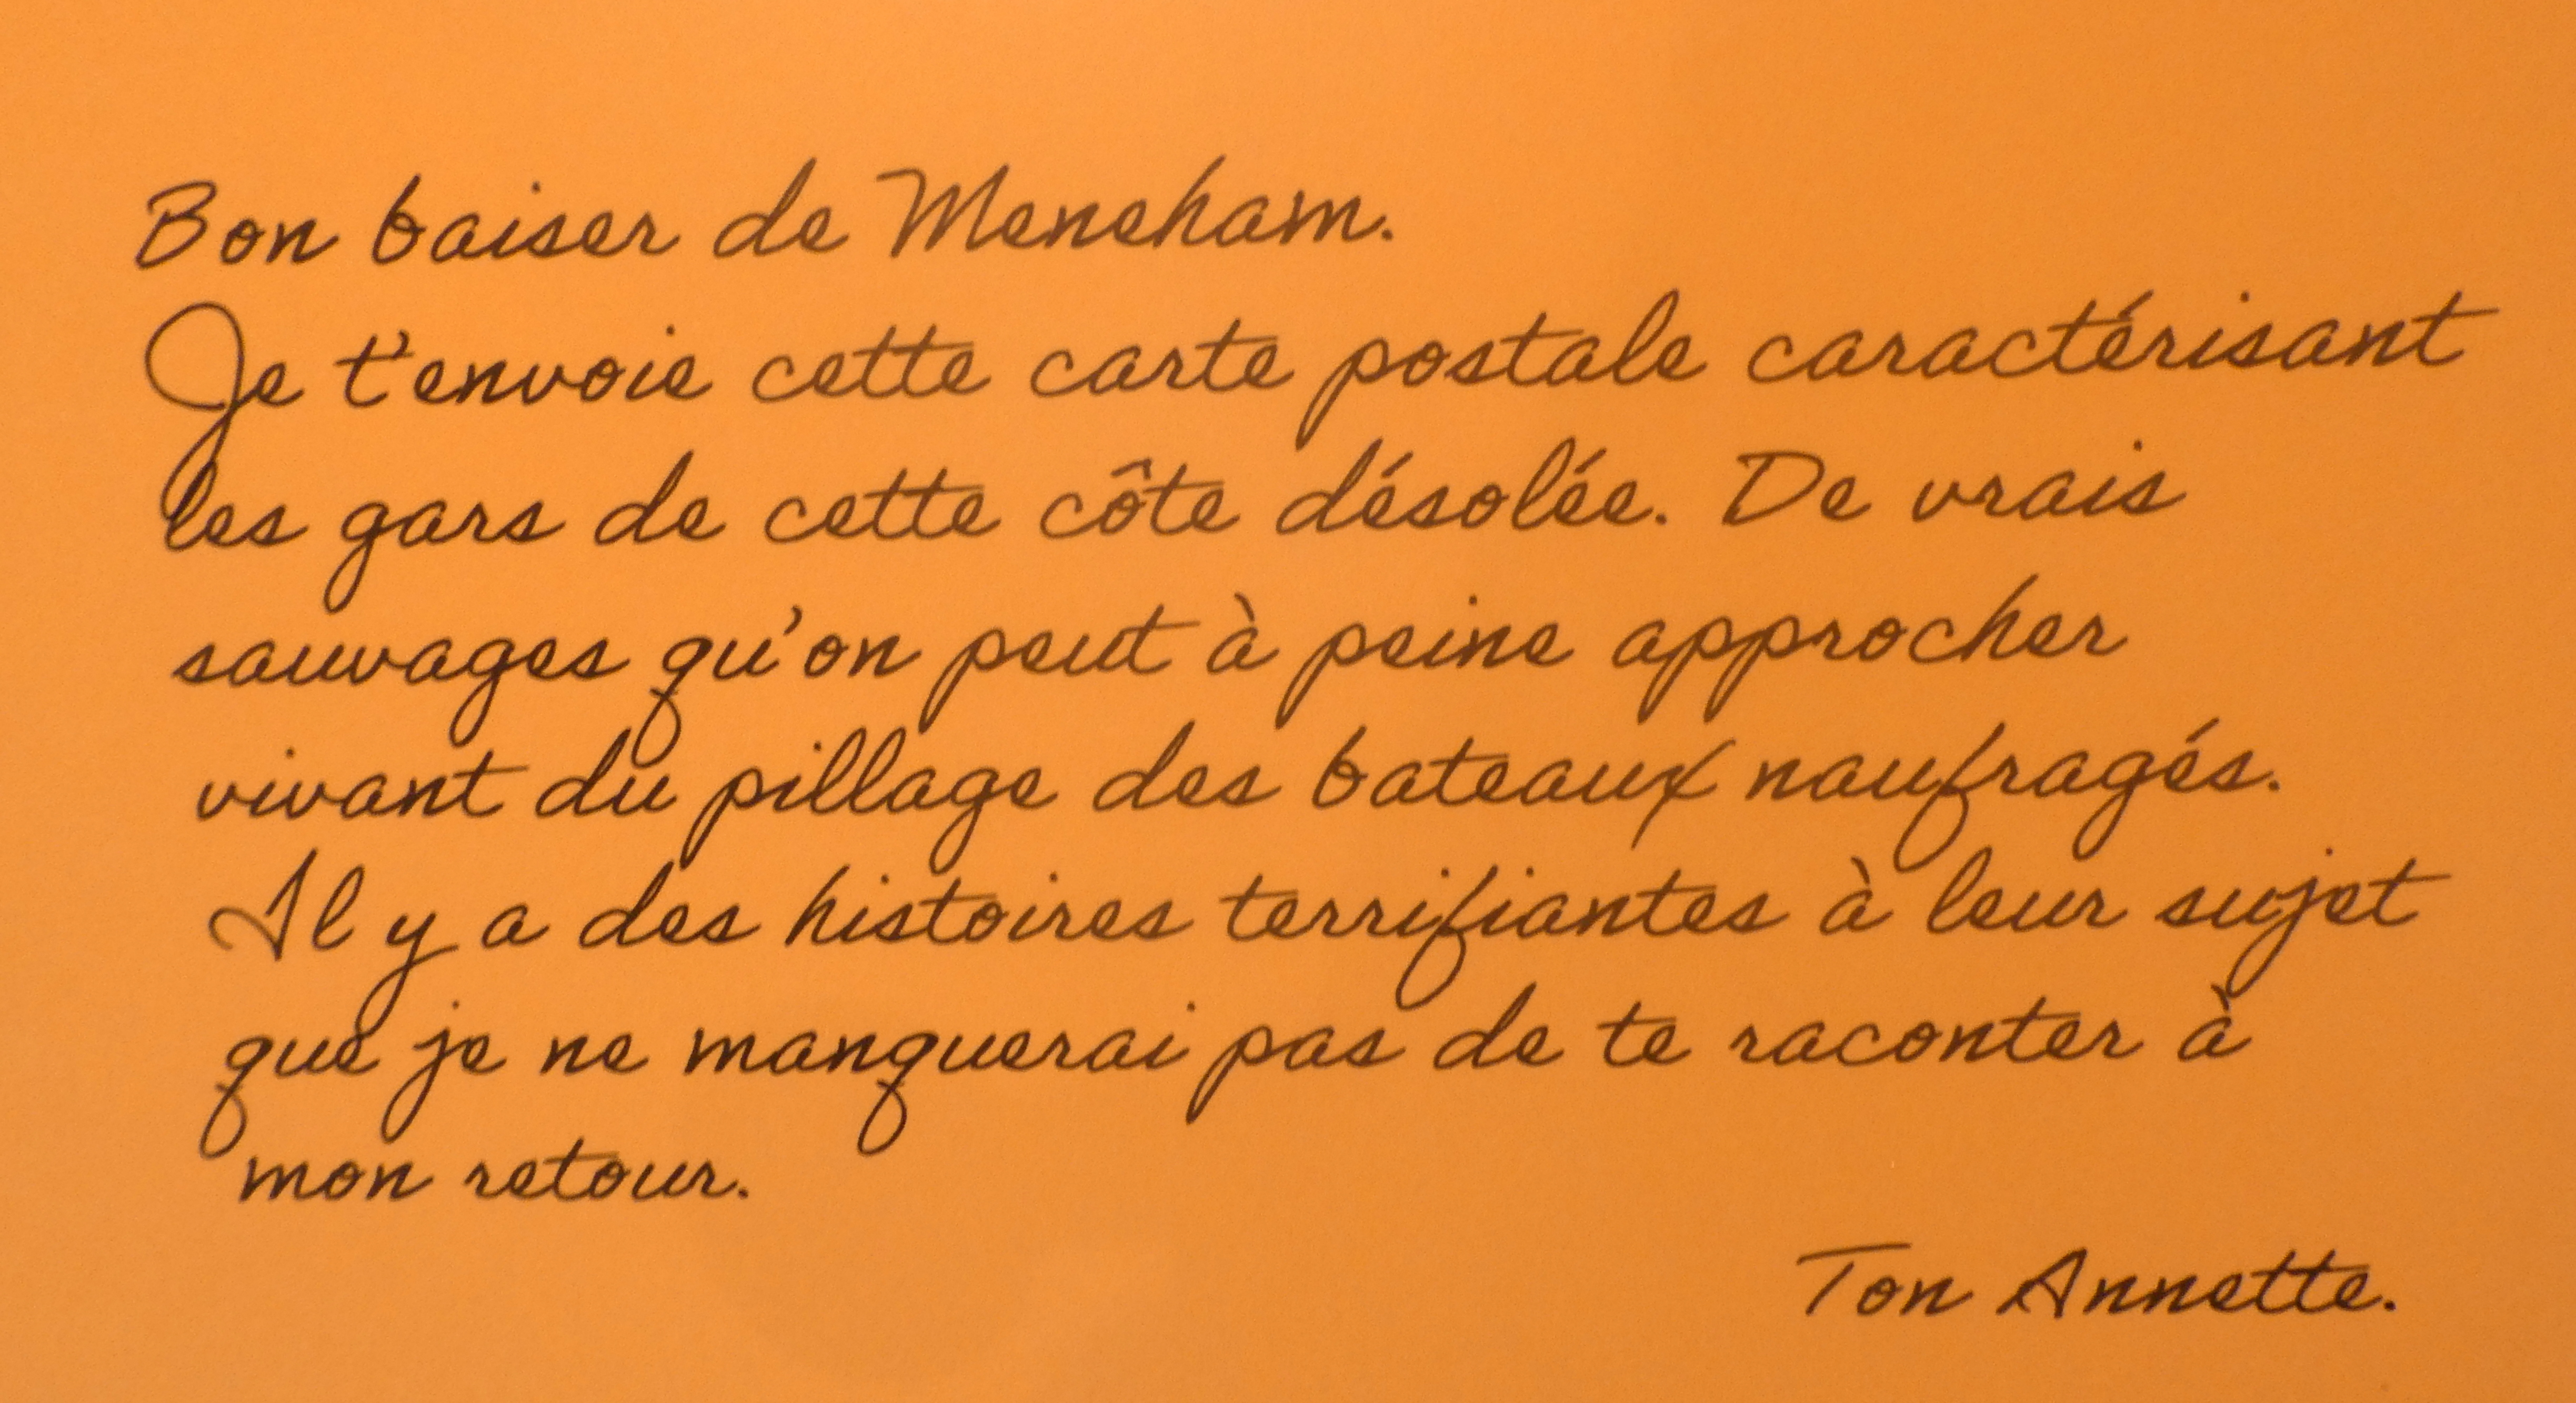 Bon baiser de Meneham.
Je t'envoie cette carte postale caractérisant
les gars de cette côte désolée. De vrais
sauvages qu'on peut à peine approcher
vivant du pillage des bateaux naufragés.
Il y a des histoires terrifiantes à leur sujet
que je ne manquerai pas de te raconter à
mon retour.
Ton Annette.